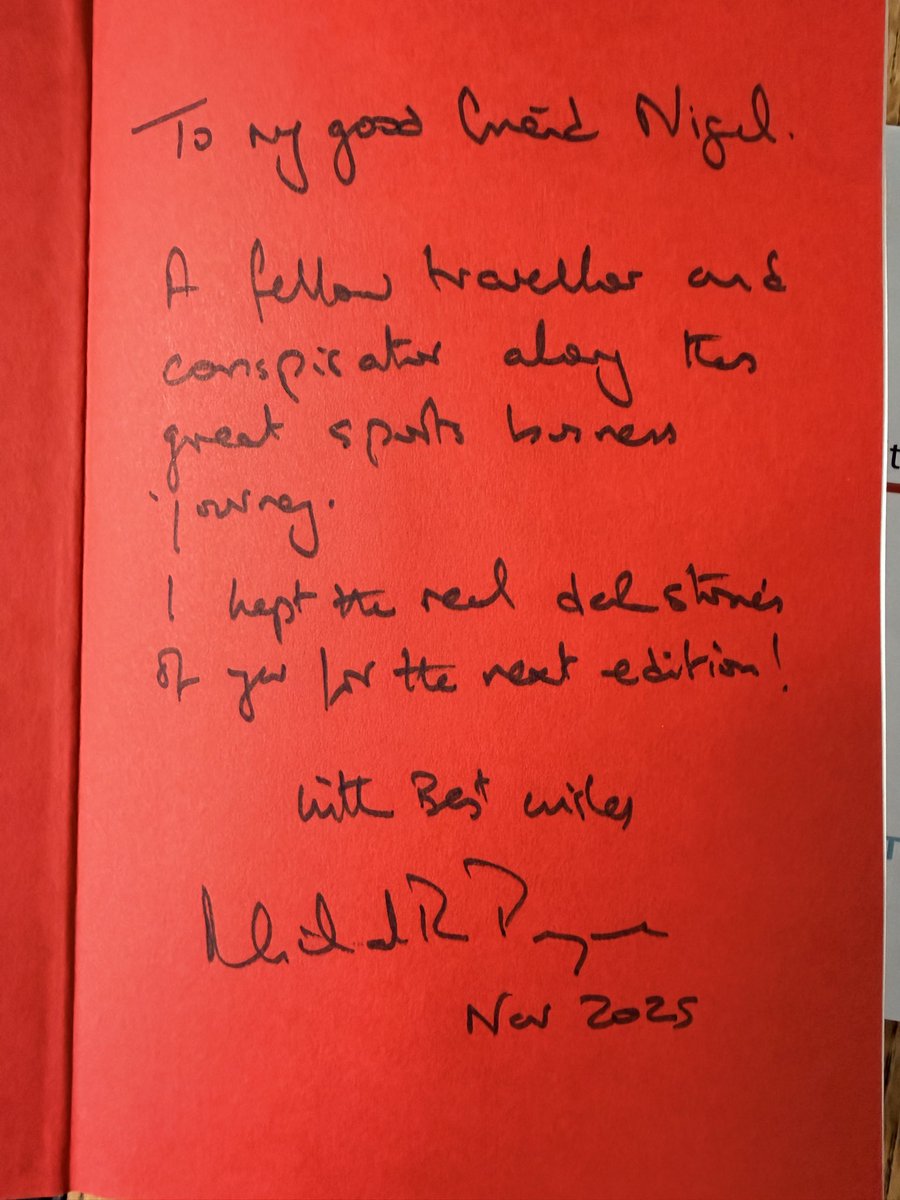 To my good friend Nigel.
A fellow traveller and
conspirator along this
great sports business
journey.
I kept the real stories
of you for the next edition!
with Best wishes
Michael R Payne
Nov 2025
t